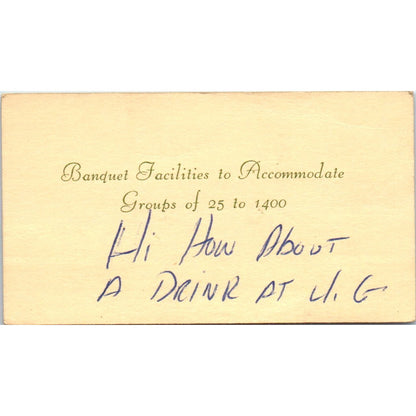 Banquet Facilities to Accommodate
Groups of 25 to 1400
Hi How About
A DRINK AT